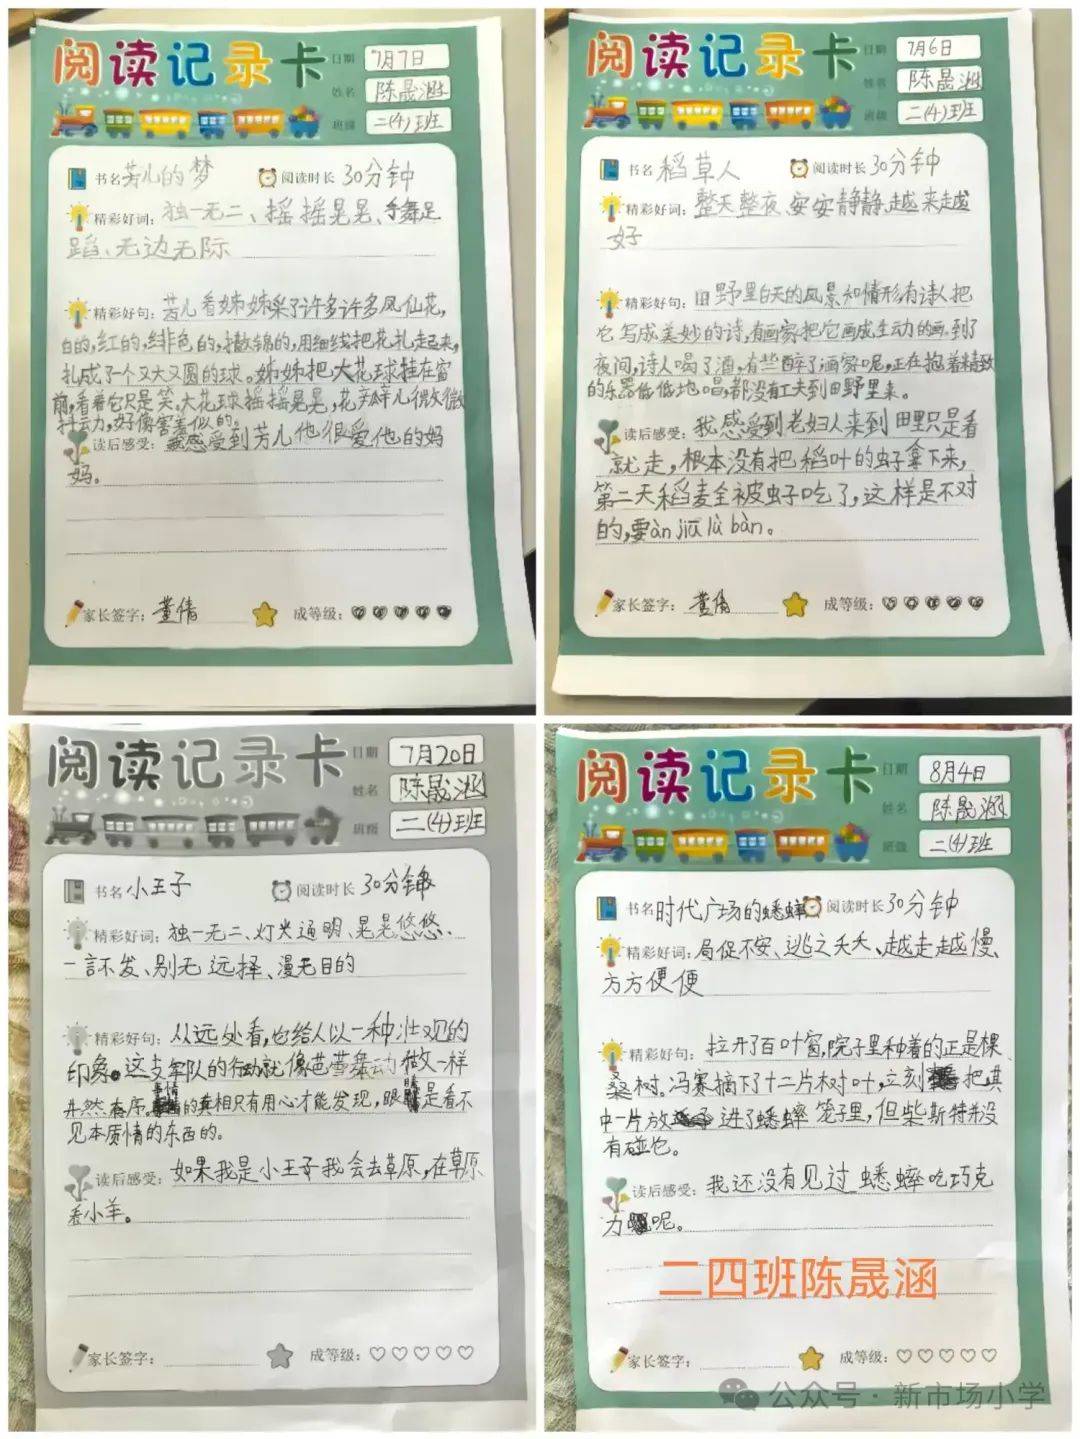 阅读记录卡
日期 7月7日
姓名 陈晟涵
班级 二(4)班
书名 芳儿的梦 阅读时长 30分钟
精彩好词：独一无二、摇摇晃晃、手舞足
蹈、无边无际
精彩好句：芳儿看姊姊采了许多许多凤仙花，
白的，红的，绯色的，撒锦的，用细线把花扎起来，
扎成了一个又大又圆的球。姊姊把大花球挂在窗
前，看着它只是笑。大花球摇摇晃晃，花瓣儿微微
抖动，好像害羞似的。
读后感受：我感受到芳儿他很爱他的妈
妈。
家长签字：董倩 成等级：
阅读记录卡
日期 7月6日
姓名 陈晟涵
班级 二(4)班
书名 稻草人 阅读时长 30分钟
精彩好词：整天整夜、安安静静、越来越
好
精彩好句：田野里白天的风景和情形，有诗人把
它写成美妙的诗，有画家把它画成生动的画。到了
夜间，诗人喝了酒，有些醉了；画家呢，正在抱着精致
的乐器低低地唱，都没有工夫到田野里来。
读后感受：我感受到老妇人来到田里只是看
就走，根本没有把稻叶的虫子拿下来，
第二天稻麦全被虫子吃了，这样是不对
的，要àn jīu lù bàn。
家长签字：董倩 成等级：
阅读记录卡
日期 7月20日
姓名 陈晟涵
班级 二(4)班
书名 小王子 阅读时长 30分钟
精彩好词：独一无二、灯火通明、晃晃悠悠、
一言不发、别无选择、漫无目的
精彩好句：从远处看，也给人以一种壮观的
印象。这支军队的行动就像芭蕾舞动作一样
井然有序。事情的真相只有用心才能发现，眼睛是看不
见本质情的东西的。
读后感受：如果我是小王子我会去草原，在草原
看小羊。
家长签字： 成等级：
阅读记录卡
日期 8月4日
姓名 陈晟涵
班级 二(4)班
书名 时代广场的蟋蟀 阅读时长 30分钟
精彩好词：局促不安、逃之夭夭、越走越慢、
方方便便
精彩好句：拉开了百叶窗，院子里种着的正是棵
桑树。冯赛摘下了十二片树叶，立刻把其
中一片放进了蟋蟀笼子里，但柴斯特并没
有碰它。
读后感受：我还没有见过蟋蟀吃巧克
力呢。
二四班陈晟涵
家长签字： 成等级：
公众号·新市场小学